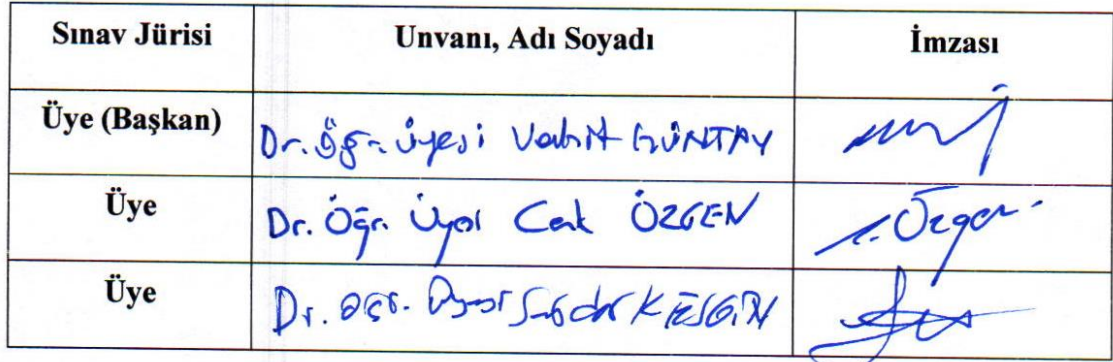 Sınav Jürisi Unvanı, Adı Soyadı İmzası
Üye (Başkan) Dr. Öğr. Üyesi Vahit GÜNTAY
Üye Dr. Öğr. Üyesi Cenk ÖZGEN C. Özgen
Üye Dr. Öğr. Üyesi Serdar KESGİN